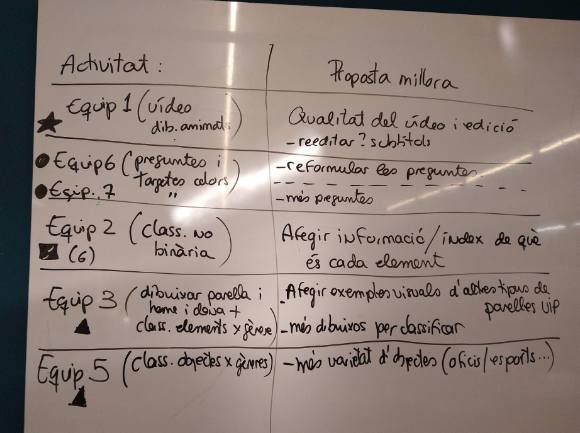 Activitat :
Proposta millora
Equip 1 (vídeo
dib. animat.)
Qualitat del vídeo i edició
- reeditar? subtítols
Equip 6 (preguntes i
targetes colors)
- reformular les preguntes
Equip. 7 "
- més preguntes
Equip 2 (class. no
(6) binària)
Afegir informació/índex de què
és cada element
Equip 3 (dibuixar parella i
home i dona +
class. elements x gènere)
- Afegir exemples visuals d'altres tipus de
parelles VIP
- més dibuixos per classificar
Equip 5 (class. objectes x gèneres)
- més varietat d'objectes (oficis/esports...)